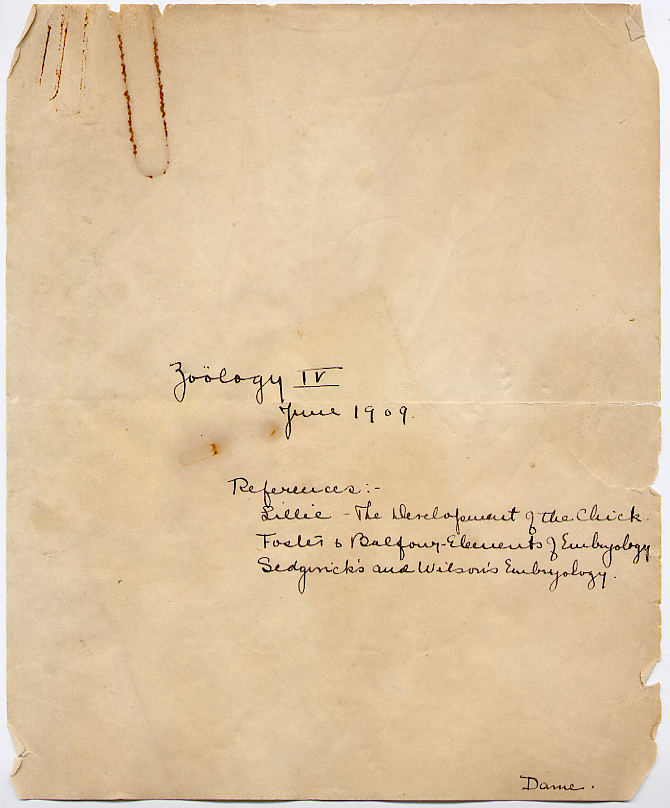 Zoölogy IV
June 1909.
References:-
Lillie - The Development of the Chick.
Foster & Balfour - Elements of Embryology
Sedgwick's and Wilson's Embryology.
Dame.